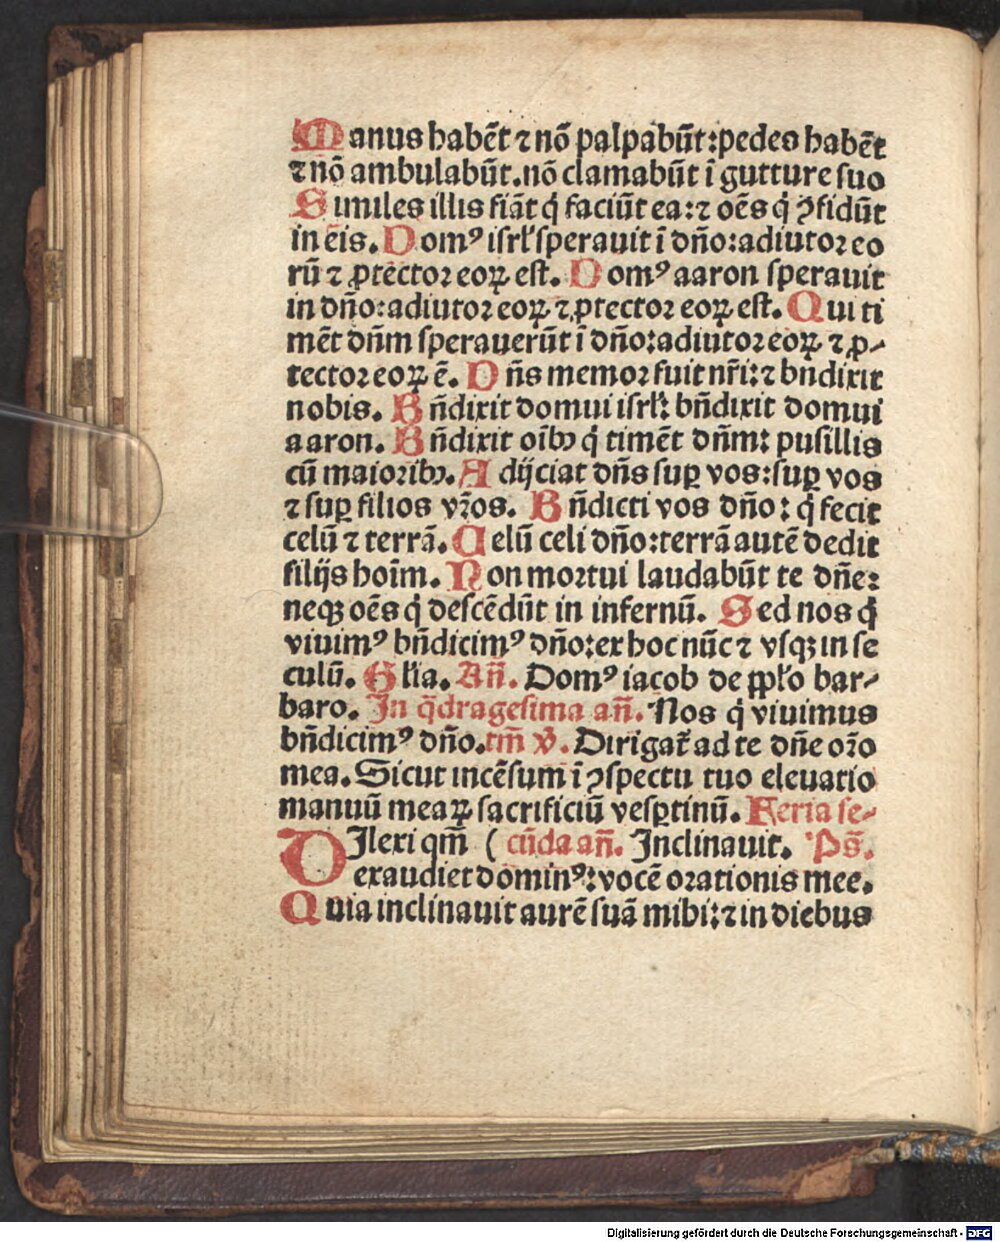 Manus habēt ⁊ nō palpabūt: pedes habēt
⁊ nō ambulabūt. nō clamabūt ī gutture suo
Similes illis fiāt q̄ faciūt ea: ⁊ oēs q̄ ꝯfidūt
in eis. Domꝰ isrl' sperauit ī dño: adiutor eo
rū ⁊ ꝓtector eoꝝ est. Domꝰ aaron sperauit
in dño: adiutor eoꝝ ⁊ ꝓtector eoꝝ est. Qui ti
mēt dñm sperauerūt ī dño: adiutor eoꝝ ⁊ ꝓ-
tector eoꝝ ē. Dñs memor fuit nr̄i: ⁊ bñdixit
nobis. Bñdixit domui isrl': bñdixit domui
aaron. Bñdixit oībꝫ q̄ timēt dñm: pusillis
cū maioribꝫ. Adijciat dñs suꝑ vos: suꝑ vos
⁊ suꝑ filios vr̄os. Bñdicti vos dño: q̄ fecit
celū ⁊ terrā. Celū celi dño: terrā autē dedit
filijs hoīm. Non mortui laudabūt te dñe:
neqꝫ oēs q̄ descēdūt in infernū. Sed nos q̄
viuimꝰ bñdicimꝰ dño: ex hoc nūc ⁊ vsqꝫ in se
culū. Gl'ia. Añ. Domꝰ iacob de ppl'o bar-
baro. In q̄dragesima añ. Nos q̄ viuimus
bñdicimꝰ dño. tm̄ v̄. Dirigat̄ ad te dñe or̄o
mea. Sicut incēsum ī ꝯspectu tuo eleuatio
manuū meaꝝ sacrificiū vesꝑtinū. Feria se-
DIlexi qm̄ ( cūda añ. Inclinauit. Ps̄.
exaudiet dominꝰ: vocē orationis mee.
Quia inclinauit aurē suā mihi: ⁊ in diebus
Digitalisierung gefördert durch die Deutsche Forschungsgemeinschaft - DFG